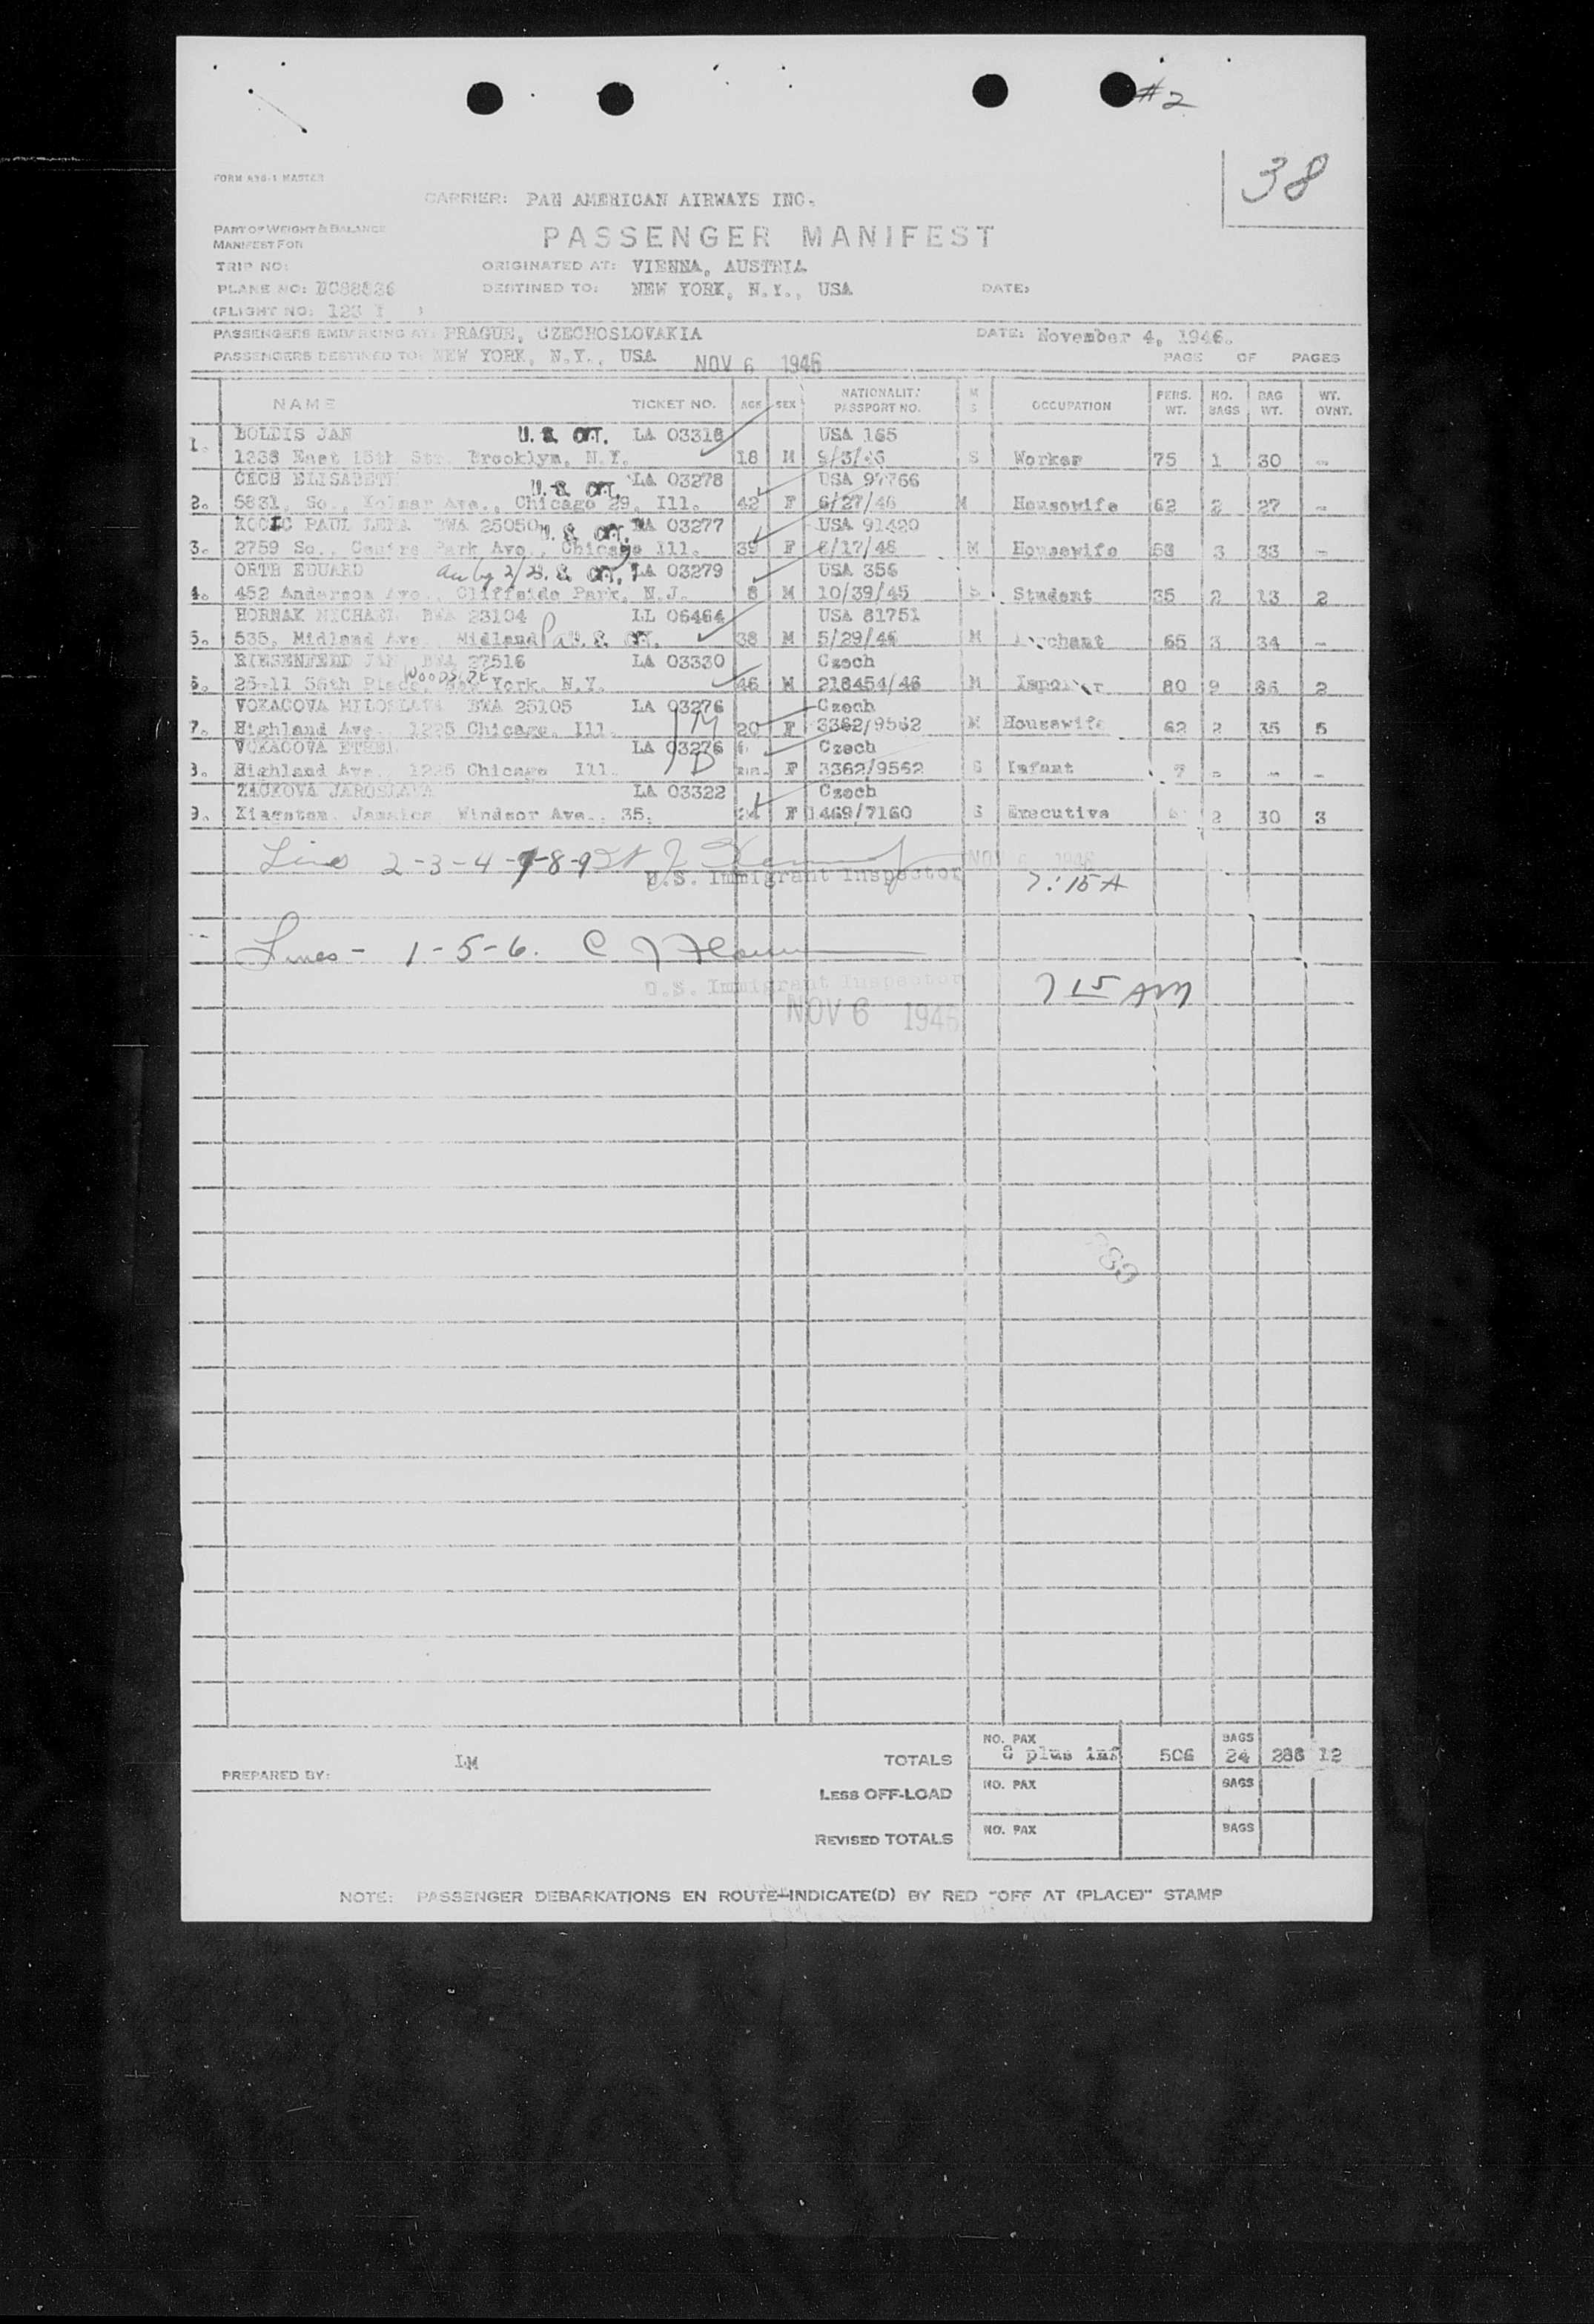 #2
38
FORM A96-1 MASTER
CARRIER: PAN AMERICAN AIRWAYS INC.
PART OF WEIGHT & BALANCE
MANIFEST FOR
PASSENGER MANIFEST
TRIP NO:
ORIGINATED AT: VIENNA, AUSTRIA
PLANE NO: NC88836
DESTINED TO: NEW YORK, N.Y., USA
DATE:
(FLIGHT NO: 123 I )
PASSENGERS EMBARKING AT: PRAGUE, CZECHOSLOVAKIA DATE: November 4, 1946.
PASSENGERS DESTINED TO: NEW YORK, N.Y., USA NOV 6 1946 PAGE OF PAGES
NAME TICKET NO. AGE SEX NATIONALITY PASSPORT NO. M S OCCUPATION PERS. WT. NO. BAGS BAG WT. WT. OVNT.
BOLDIS JAN U.S. CIT. LA 03316 USA 165
1. 1238 East 15th Str. Brooklyn, N.Y. 18 M 9/3/46 S Worker 75 1 30 -
CECH ELISABETH U.S. CIT. LA 03278 USA 97766
2. 5831, So., Kolmar Ave., Chicago 29, Ill. 42 F 6/27/46 M Housewife 62 2 27 -
PAUL LENA BWA 25050 U.S. CIT. LA 03277 USA 91420
3. 2759 So., Centre Park Ave., Chicago Ill. 39 F 6/17/46 M Housewife 3 33 -
ORTH EDUARD U.S. CIT. LA 03279 USA 356
4. 452 Anderson Ave., Cliffside Park, N.J. 8 M 10/39/45 S Student 35 2 13 2
HORNAK MICHAEL BWA 23104 LL 06464 USA 81751
5. 535, Midland Ave. Midland Pa U.S. CIT. 38 M 5/29/46 M Merchant 65 3 34 -
RIESENFELD JAN BWA 27516 LA 03330 Czech
WOODSIDE
6. 25-11 56th Place, New York, N.Y. 46 M 218454/46 M Importer 80 9 86 2
VOKACOVA MILOSLAVA BWA 25105 LA 03276 Czech
7. Highland Ave. 1225 Chicago, Ill. 20 F 3362/9562 M Housewife 62 2 35 5
VOKACOVA ETHEL LA 03276 Czech
8. Highland Ave. 1225 Chicago Ill. F 3362/9562 S Infant 7 - - -
ZACKOVA JAROSLAVA LA 03322 Czech
9. Kingston, Jamaica, Windsor Ave., 35. 24 F 1469/7160 S Executive 2 30 3
Line 2-3-4-7-8-9 NOV 6 1946
U.S. Immigrant Inspector 7:15 A
Lines - 1-5-6.
U.S. Immigrant Inspector 7 15 AM
NOV 6 1946
PREPARED BY: LM
TOTALS NO. PAX 8 plus inf 506 BAGS 24 288 12
LESS OFF-LOAD NO. PAX BAGS
REVISED TOTALS NO. PAX BAGS
NOTE: PASSENGER DEBARKATIONS EN ROUTE-INDICATE(D) BY RED "OFF AT (PLACE)" STAMP